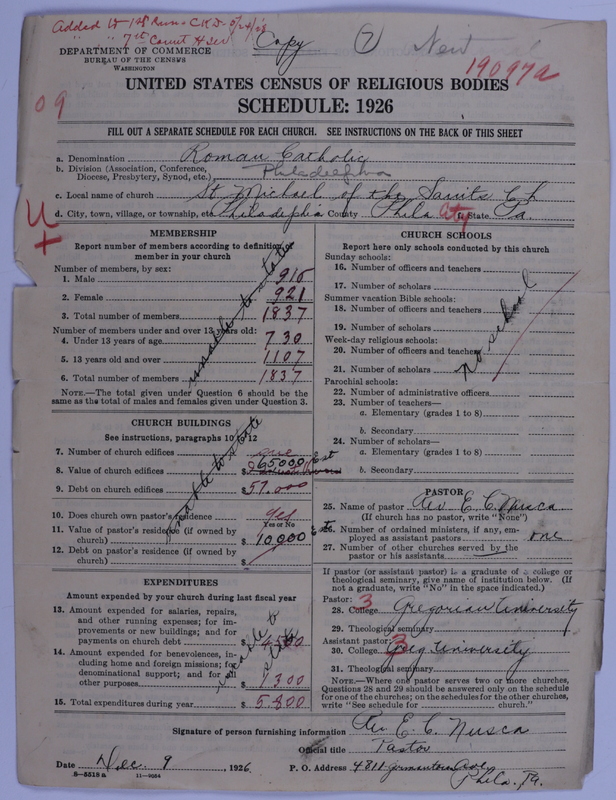 Added 1st Run - C.K.D. - 5/24/28
" " 7th Count H Ser
Copy
7
New
19097a
09
DEPARTMENT OF COMMERCE
BUREAU OF THE CENSUS
WASHINGTON
UNITED STATES CENSUS OF RELIGIOUS BODIES
SCHEDULE: 1926
FILL OUT A SEPARATE SCHEDULE FOR EACH CHURCH. SEE INSTRUCTIONS ON THE BACK OF THIS SHEET
a. Denomination Roman Catholic
b. Division (Association, Conference,
Diocese, Presbytery, Synod, etc.) Philadelphia
c. Local name of church St. Michael of the Saints Ch
d. City, town, village, or township, etc. Philadelphia County Phila City State Pa.
U
+
MEMBERSHIP
Report number of members according to definition of
member in your church
Number of members, by sex:
1. Male 916
2. Female 921
3. Total number of members 1837
Number of members under and over 13 years old:
4. Under 13 years of age 730
5. 13 years old and over 1107
6. Total number of members 1837
unable to state
NOTE.—The total given under Question 6 should be
same as the total of males and females given under Question 3.
CHURCH BUILDINGS
See instructions, paragraphs 10 to 12
7. Number of church edifices one
8. Value of church edifices $ 65000 Est
9. Debt on church edifices $ 57.000
10. Does church own pastor's residence yes
Yes or No
11. Value of pastor's residence (if owned by
church) $ 10,000 Est
12. Debt on pastor's residence (if owned by
church) $
unable to state
EXPENDITURES
Amount expended by your church during last fiscal year
13. Amount expended for salaries, repairs,
and other running expenses; for im-
provements or new buildings; and for
payments on church debt $ 4500
14. Amount expended for benevolences, in-
cluding home and foreign missions; for
denominational support; and for all
other purposes $ 1300
15. Total expenditures during year $ 5.800
unable to
state
CHURCH SCHOOLS
Report here only schools conducted by this church
Sunday schools:
16. Number of officers and teachers
17. Number of scholars
Summer vacation Bible schools:
18. Number of officers and teachers
19. Number of scholars
Week-day religious schools:
20. Number of officers and teachers
21. Number of scholars
Parochial schools:
22. Number of administrative officers
23. Number of teachers—
a. Elementary (grades 1 to 8)
b. Secondary
24. Number of scholars—
a. Elementary (grades 1 to 8)
b. Secondary
no school
PASTOR
25. Name of pastor Rev E. C. Nusca
(If church has no pastor, write "None")
26. Number of ordained ministers, if any, em-
ployed as assistant pastors one
27. Number of other churches served by the
pastor or his assistants
If pastor (or assistant pastor) is a graduate of a college or
theological seminary, give name of institution below. (If
not a graduate, write "No" in the space indicated.)
Pastor:
28. College 3 Gregorian University
29. Theological seminary
Assistant pastor: 3
30. College Greg University
31. Theological seminary
NOTE.—Where one pastor serves two or more churches,
Questions 28 and 29 should be answered only on the schedule
for one of the churches; on the schedules for the other churches,
write "See schedule for church."
Signature of person furnishing information Rev E. C. Nusca
Official title Pastor
Date Dec. 9, 1926. P. O. Address 4811 Germantown Ave
Phila. Pa.
8—5518 a 11—9064